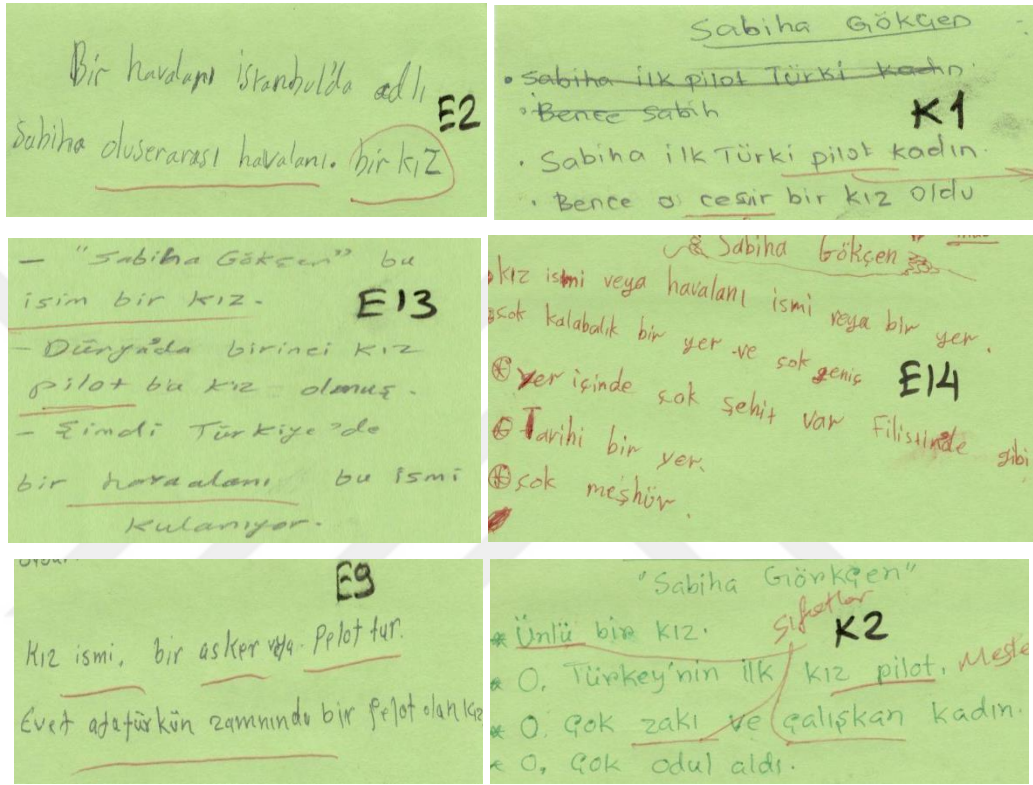 Bir havalanı istanbul'da adlı
E2
Sabiha oluserarası havalanı. bir kız
Sabiha Gökçen
• Sabiha ilk pilot Türki kadın.
• Bence Sabih
K1
• Sabiha ilk Türki pilot kadın.
• Bence o cesur bir kız oldu
— "Sabiha Gökçen" bu
isim bir kız.
E13
— Dünyada birinci kız
pilot bu kız olmuş.
— Şimdi Türkiye'de
bir havaalanı bu ismi
kulanıyor.
Sabiha Gökçen
kız ismi veya havalanı ismi veya bir yer.
çok kalabalık bir yer ve çok geniş
E14
yer içinde çok şehit var Filistinde gibi
Tarihi bir yer.
çok meşhür.
E9
Kız ismi, bir asker veya Pelottur.
Evet atatürkün zamnında bir pelot olan kız
"Sabiha Görkçen"
Sıfatlar
K2
* Ünlü bir kız.
* O, Türkey'nin ilk kız pilot. Mesle
* O, Çok zakı ve çalışkan kadın.
* O, Çok odul aldı.